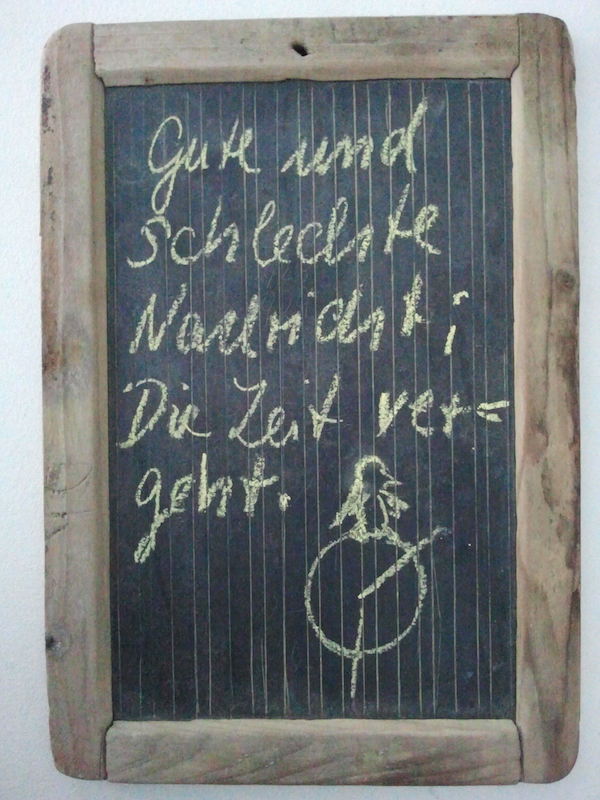 Gute und
schlechte
Nachricht;
Die Zeit ver=
geht.